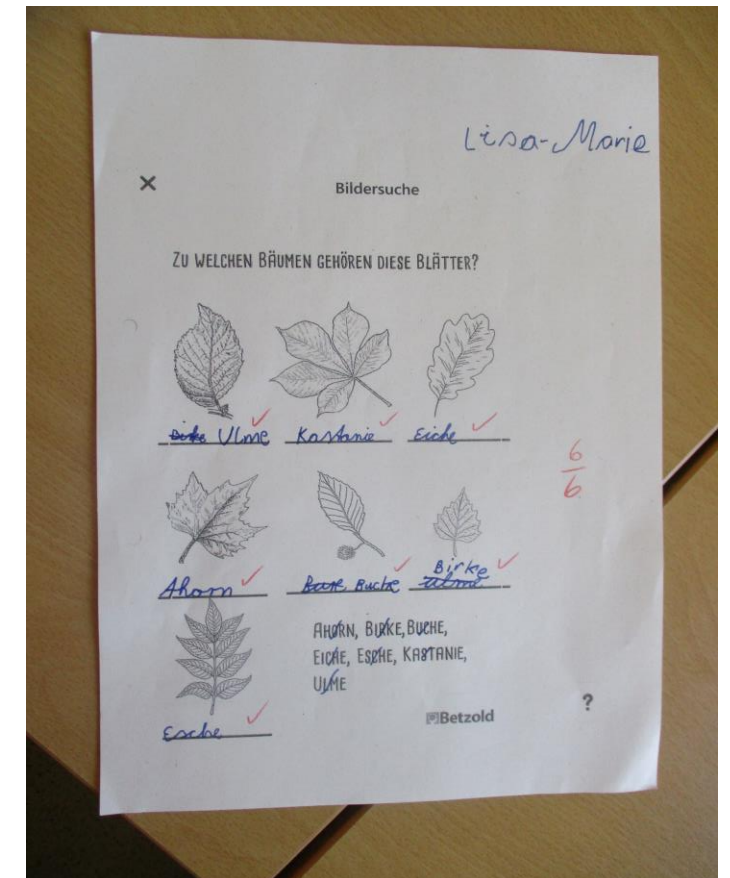 Lisa-Marie
Bildersuche
ZU WELCHEN BÄUMEN GEHÖREN DIESE BLÄTTER?
Birke Ulme Kastanie Eiche
6
6
Birke
Ahorn Buche Ulme
AHORN, BIRKE, BUCHE,
EICHE, ESCHE, KASTANIE,
ULME
?
Betzold
Esche